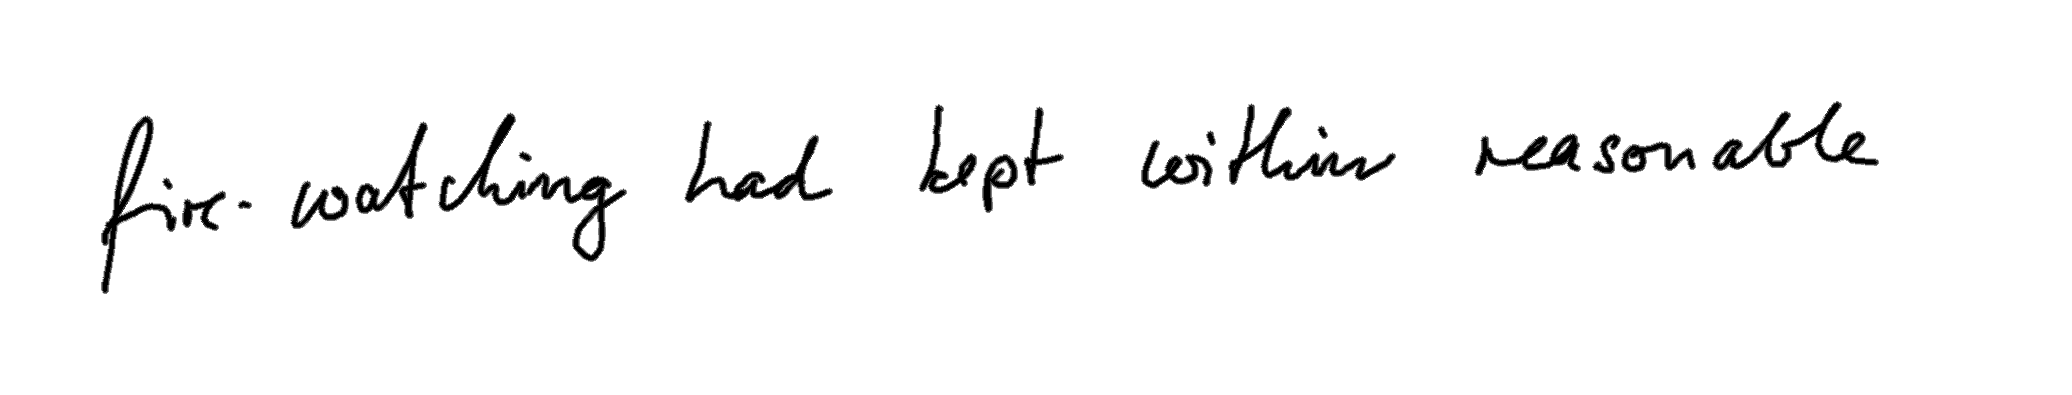 fire-watching had kept within reasonable